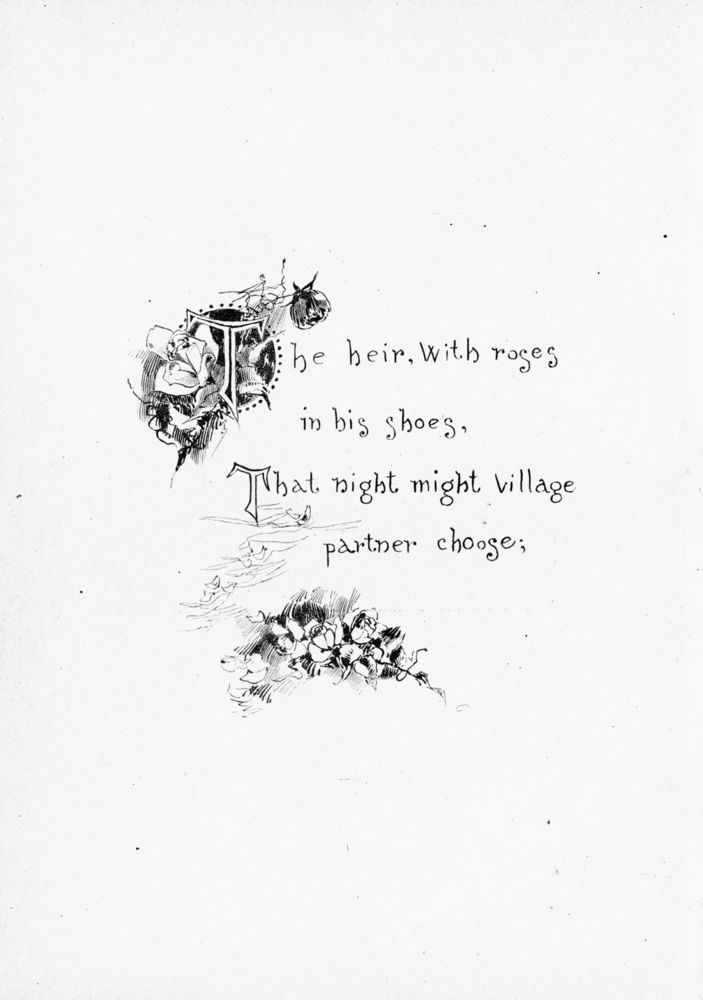 The heir, With roses
in his shoes,
That night might Village
partner choose;